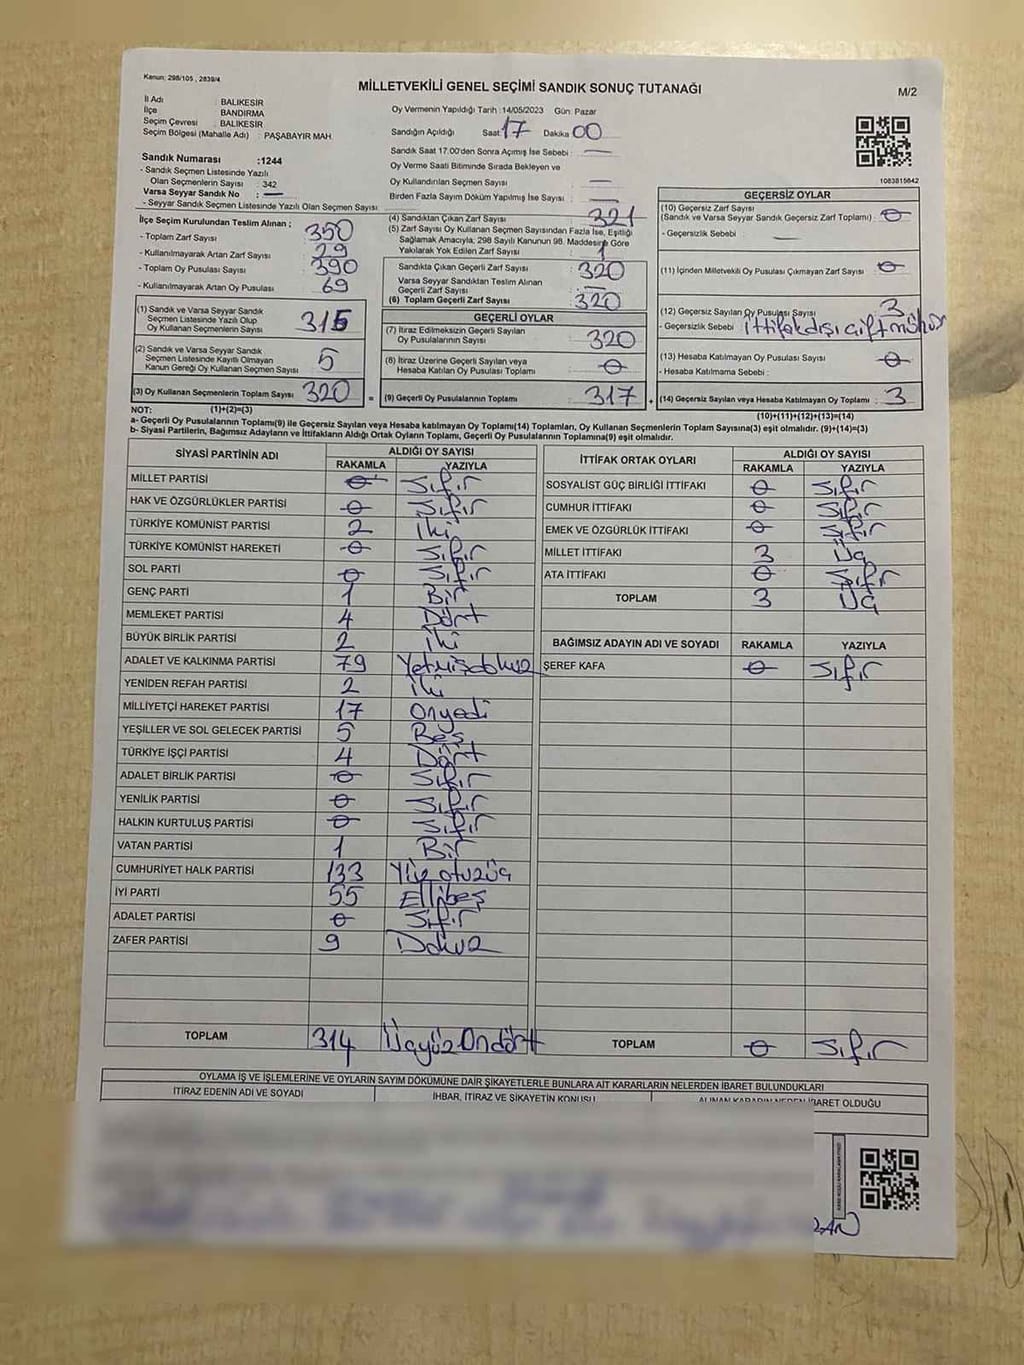 Kanun: 298/105 , 2839/4
MİLLETVEKİLİ GENEL SEÇİMİ SANDIK SONUÇ TUTANAĞI
M/2
İl Adı : BALIKESİR
İlçe : BANDIRMA
Seçim Çevresi : BALIKESİR
Seçim Bölgesi (Mahalle Adı) : PAŞABAYIR MAH.
Sandık Numarası :1244
- Sandık Seçmen Listesinde Yazılı
Olan Seçmenlerin Sayısı : 342
Varsa Seyyar Sandık No : —
- Seyyar Sandık Seçmen Listesinde Yazılı Olan Seçmen Sayısı
Oy Vermenin Yapıldığı Tarih : 14/05/2023 Gün: Pazar
Sandığın Açıldığı Saat 17 Dakika 00
Sandık Saat 17.00'den Sonra Açılmış İse Sebebi : —
Oy Verme Saati Bitiminde Sırada Bekleyen ve
Oy Kullandırılan Seçmen Sayısı : —
Birden Fazla Sayım Döküm Yapılmış İse Sayısı : —
1083815642
İlçe Seçim Kurulundan Teslim Alınan ;
- Toplam Zarf Sayısı : 350
- Kullanılmayarak Artan Zarf Sayısı : 29
- Toplam Oy Pusulası Sayısı : 390
- Kullanılmayarak Artan Oy Pusulası : 69
(1) Sandık ve Varsa Seyyar Sandık
Seçmen Listesinde Yazılı Olup
Oy Kullanan Seçmenlerin Sayısı : 315
(2) Sandık ve Varsa Seyyar Sandık
Seçmen Listesinde Kayıtlı Olmayan
Kanun Gereği Oy Kullanan Seçmen Sayısı : 5
(3) Oy Kullanan Seçmenlerin Toplam Sayısı : 320
(4) Sandıktan Çıkan Zarf Sayısı : 321
(5) Zarf Sayısı Oy Kullanan Seçmen Sayısından Fazla İse, Eşitliği
Sağlamak Amacıyla; 298 Sayılı Kanunun 98. Maddesine Göre
Yakılarak Yok Edilen Zarf Sayısı : 1
Sandıkta Çıkan Geçerli Zarf Sayısı : 320
Varsa Seyyar Sandıktan Teslim Alınan
Geçerli Zarf Sayısı : —
(6) Toplam Geçerli Zarf Sayısı : 320
GEÇERLİ OYLAR
(7) İtiraz Edilmeksizin Geçerli Sayılan
Oy Pusulalarının Sayısı : 320
(8) İtiraz Üzerine Geçerli Sayılan veya
Hesaba Katılan Oy Pusulası Toplamı : 0
= (9) Geçerli Oy Pusulalarının Toplamı : 317 +
GEÇERSİZ OYLAR
(10) Geçersiz Zarf Sayısı
(Sandık ve Varsa Seyyar Sandık Geçersiz Zarf Toplamı) : 0
- Geçersizlik Sebebi : —
(11) İçinden Milletvekili Oy Pusulası Çıkmayan Zarf Sayısı : 0
(12) Geçersiz Sayılan Oy Pusulası Sayısı : 3
- Geçersizlik Sebebi : ittifak dışı çift mühür
(13) Hesaba Katılmayan Oy Pusulası Sayısı : 0
- Hesaba Katılmama Sebebi :
(14) Geçersiz Sayılan veya Hesaba Katılmayan Oy Toplamı : 3
NOT: (1)+(2)=(3) (10)+(11)+(12)+(13)=(14)
a- Geçerli Oy Pusulalarının Toplamı(9) ile Geçersiz Sayılan veya Hesaba katılmayan Oy Toplamı(14) Toplamları, Oy Kullanan Seçmenlerin Toplam Sayısına(3) eşit olmalıdır. (9)+(14)=(3)
b- Siyasi Partilerin, Bağımsız Adayların ve İttifakların Aldığı Ortak Oyların Toplamı, Geçerli Oy Pusulalarının Toplamına(9) eşit olmalıdır.
SİYASİ PARTİNİN ADI ALDIĞI OY SAYISI
RAKAMLA YAZIYLA
MİLLET PARTİSİ 0 Sıfır
HAK VE ÖZGÜRLÜKLER PARTİSİ 0 Sıfır
TÜRKİYE KOMÜNİST PARTİSİ 2 İki
TÜRKİYE KOMÜNİST HAREKETİ 0 Sıfır
SOL PARTİ 0 Sıfır
GENÇ PARTİ 1 Bir
MEMLEKET PARTİSİ 4 Dört
BÜYÜK BİRLİK PARTİSİ 2 İki
ADALET VE KALKINMA PARTİSİ 79 Yetmişdokuz
YENİDEN REFAH PARTİSİ 2 İki
MİLLİYETÇİ HAREKET PARTİSİ 17 Onyedi
YEŞİLLER VE SOL GELECEK PARTİSİ 5 Beş
TÜRKİYE İŞÇİ PARTİSİ 4 Dört
ADALET BİRLİK PARTİSİ 0 Sıfır
YENİLİK PARTİSİ 0 Sıfır
HALKIN KURTULUŞ PARTİSİ 0 Sıfır
VATAN PARTİSİ 1 Bir
CUMHURİYET HALK PARTİSİ 133 Yüz otuzüç
İYİ PARTİ 55 Ellibeş
ADALET PARTİSİ 0 Sıfır
ZAFER PARTİSİ 9 Dokuz
TOPLAM 314 Üçyüz Ondört
İTTİFAK ORTAK OYLARI ALDIĞI OY SAYISI
RAKAMLA YAZIYLA
SOSYALİST GÜÇ BİRLİĞİ İTTİFAKI 0 Sıfır
CUMHUR İTTİFAKI 0 Sıfır
EMEK VE ÖZGÜRLÜK İTTİFAKI 0 Sıfır
MİLLET İTTİFAKI 3 Üç
ATA İTTİFAKI 0 Sıfır
TOPLAM 3 Üç
BAĞIMSIZ ADAYIN ADI VE SOYADI RAKAMLA YAZIYLA
ŞEREF KAFA 0 Sıfır
TOPLAM 0 Sıfır
OYLAMA İŞ VE İŞLEMLERİNE VE OYLARIN SAYIM DÖKÜMÜNE DAİR ŞİKAYETLERLE BUNLARA AİT KARARLARIN NELERDEN İBARET BULUNDUKLARI
İTİRAZ EDENİN ADI VE SOYADI İHBAR, İTİRAZ VE ŞİKAYETİN KONUSU ALINAN KARARIN NEDEN İBARET OLDUĞU